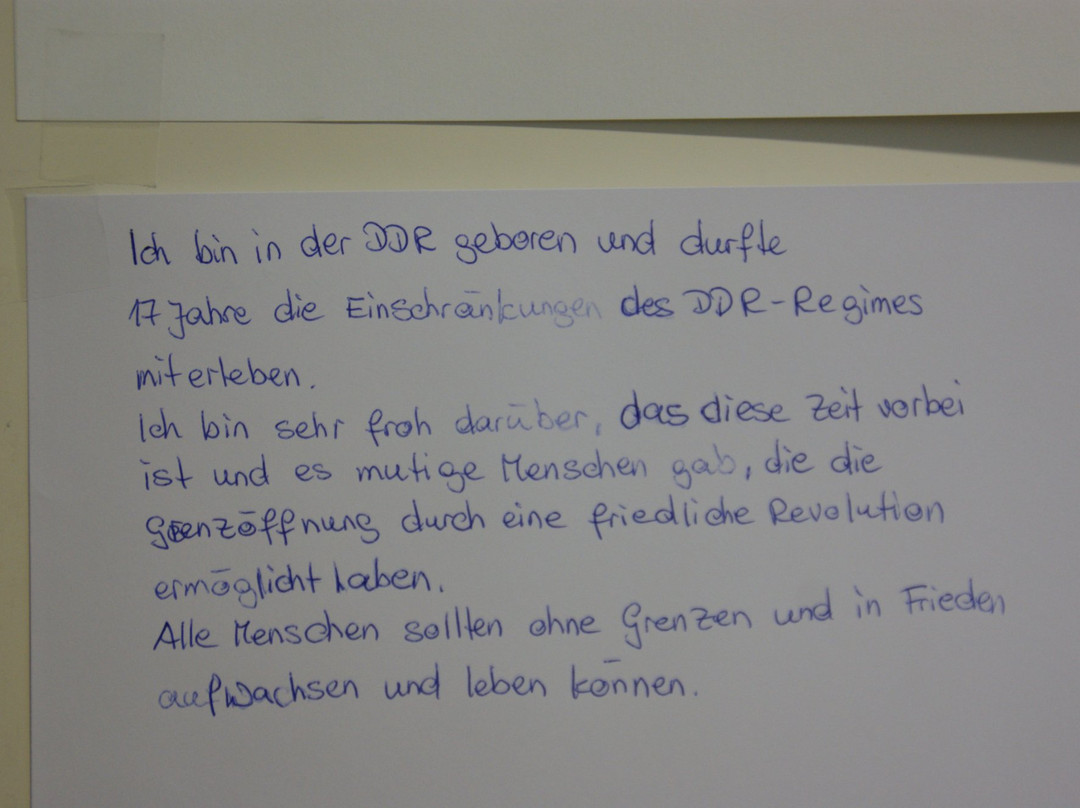 Ich bin in der DDR geboren und durfte
17 Jahre die Einschränkungen des DDR-Regimes
miterleben.
Ich bin sehr froh darüber, das diese Zeit vorbei
ist und es mutige Menschen gab, die die
Grenzöffnung durch eine friedliche Revolution
ermöglicht haben.
Alle Menschen sollten ohne Grenzen und in Frieden
aufwachsen und leben können.